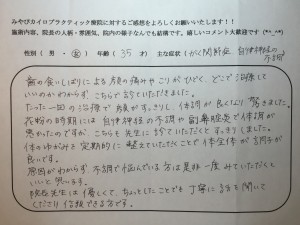 みやびカイロプラクティック療院に対するご感想をよろしくお願いいたします!!
施術内容、院長の人柄・雰囲気、院内の様子なんでも結構です。嬉しいコメント大歓迎です(*^_^*)
性別(男・女) 年齢(35)才 主な症状(がく関節症、自律神経の不調)
歯の食いしばりによる顔の痛みやこりがひどく、どこで治療して
いいのかわからず、こちらに来させていただきました。
たった一回の治療で顔がすっきりし、体調が良くなり驚きました。
花粉の時期には自律神経の不調や副鼻腔炎で体調が
悪かったのですが、こちらも先生に診ていただくとすっきりしました。
体のゆがみを定期的に整えていただくことで体全体が調子が
良いです。
原因がわからず不調で悩んでいる方は是非一度みていただくと
いいと思います。
院長先生は優しくて、ちょっとしたことでも丁寧に話を聞いて
くださり信頼できる方です。